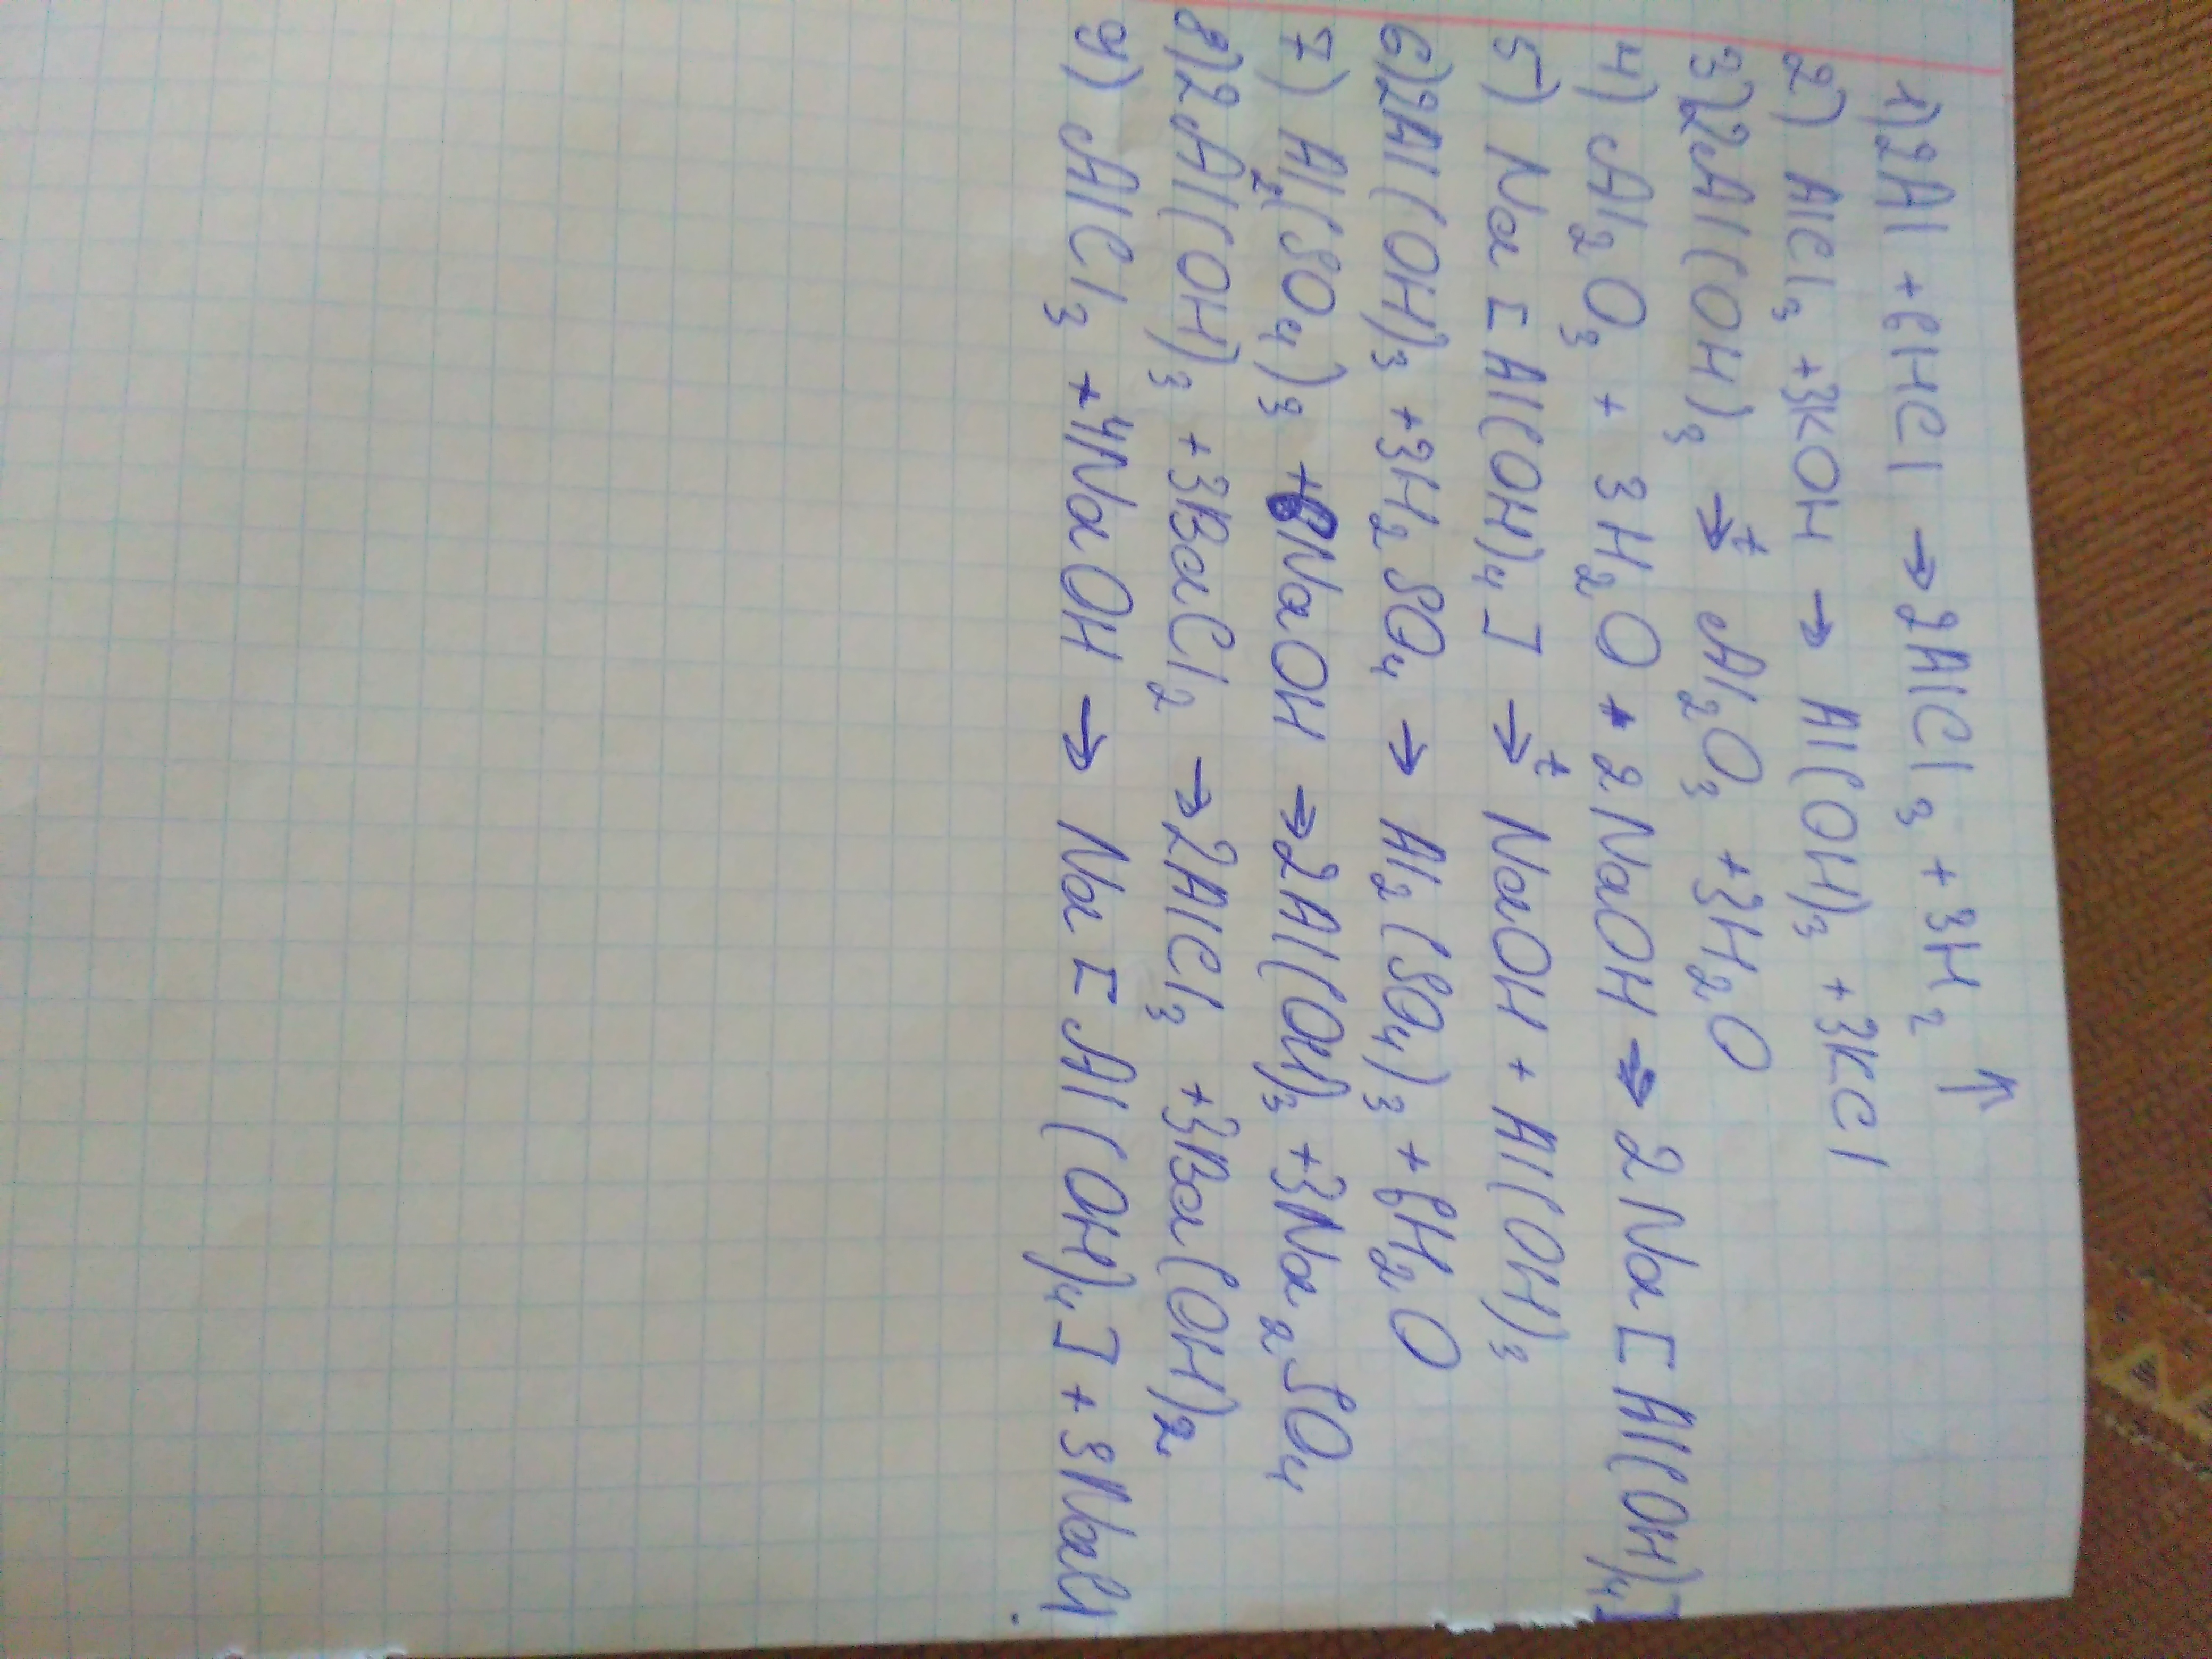 1) 2Al + 6HCl → 2AlCl₃ + 3H₂ ↑
2) AlCl₃ + 3KOH → Al(OH)₃ + 3KCl
3) 2Al(OH)₃ →ᵗ Al₂O₃ + 3H₂O
4) Al₂O₃ + 3H₂O + 2NaOH → 2Na[Al(OH)₄]
5) Na[Al(OH)₄] →ᵗ NaOH + Al(OH)₃
6) 2Al(OH)₃ + 3H₂SO₄ → Al₂(SO₄)₃ + 6H₂O
7) Al₂(SO₄)₃ + 6NaOH → 2Al(OH)₃ + 3Na₂SO₄
8) 2Al(OH)₃ + 3BaCl₂ → 2AlCl₃ + 3Ba(OH)₂
9) AlCl₃ + 4NaOH → Na[Al(OH)₄] + 3NaCl